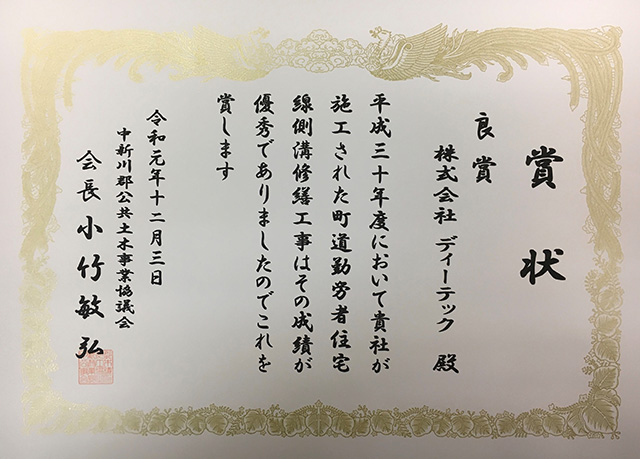 賞状
良賞
株式会社 ディーテック 殿
平成三十年度において貴社が
施工された町道勤労者住宅
線側溝修繕工事はその成績が
優秀でありましたのでこれを
賞します
令和元年十二月三日
中新川郡公共土木事業協議会
会長 小竹敏弘